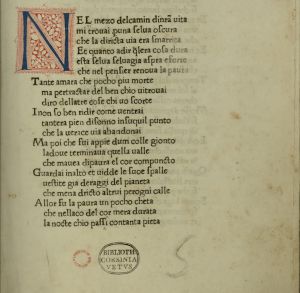 NEL mezo delcamin dinrã uita
mi trouai ꝑuna selua oscura
che la diricta uia era smarrita
Et quanto adir q̃lera cosa dura
esta selua seluagia aspra eforte
che nel pensier renoua la paura
Tante amara che pocho piu morte
ma pertractar del ben chio uitrouai
diro dellatre cose chi uo scorte
I non so ben ridir come uentrai
tantera pien disonno insuquil punto
che la uerace uia abandonai
Ma poi che fui appie dum colle gionto
ladoue terminaua quella ualle
che mauea dipaura el cor compuncto
Guardai inalto et uidde le suoe spalle
uestite gia deraggi del pianeta
che mena dricto altrui perogni calle
Allor fu la paura un pocho cheta
che nellaco del cor mera durata
la nocte chio passi contanta pieta
BIBLIOTH
CORSINIA
VETVS
5